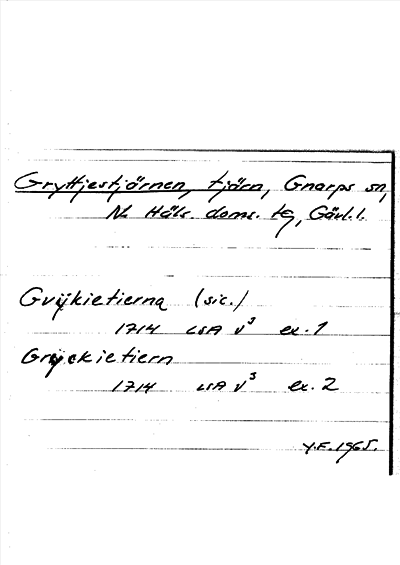 Gryttjestjärnen, tjärn, Gnarps sn,
N. Häls. doms. tg, Gävl. l.
Gvÿkietierna (sic.)
1714 LSA V³ ex. 1
Grÿckietiern
1714 LSA V³ ex. 2
Y.F. 1965.